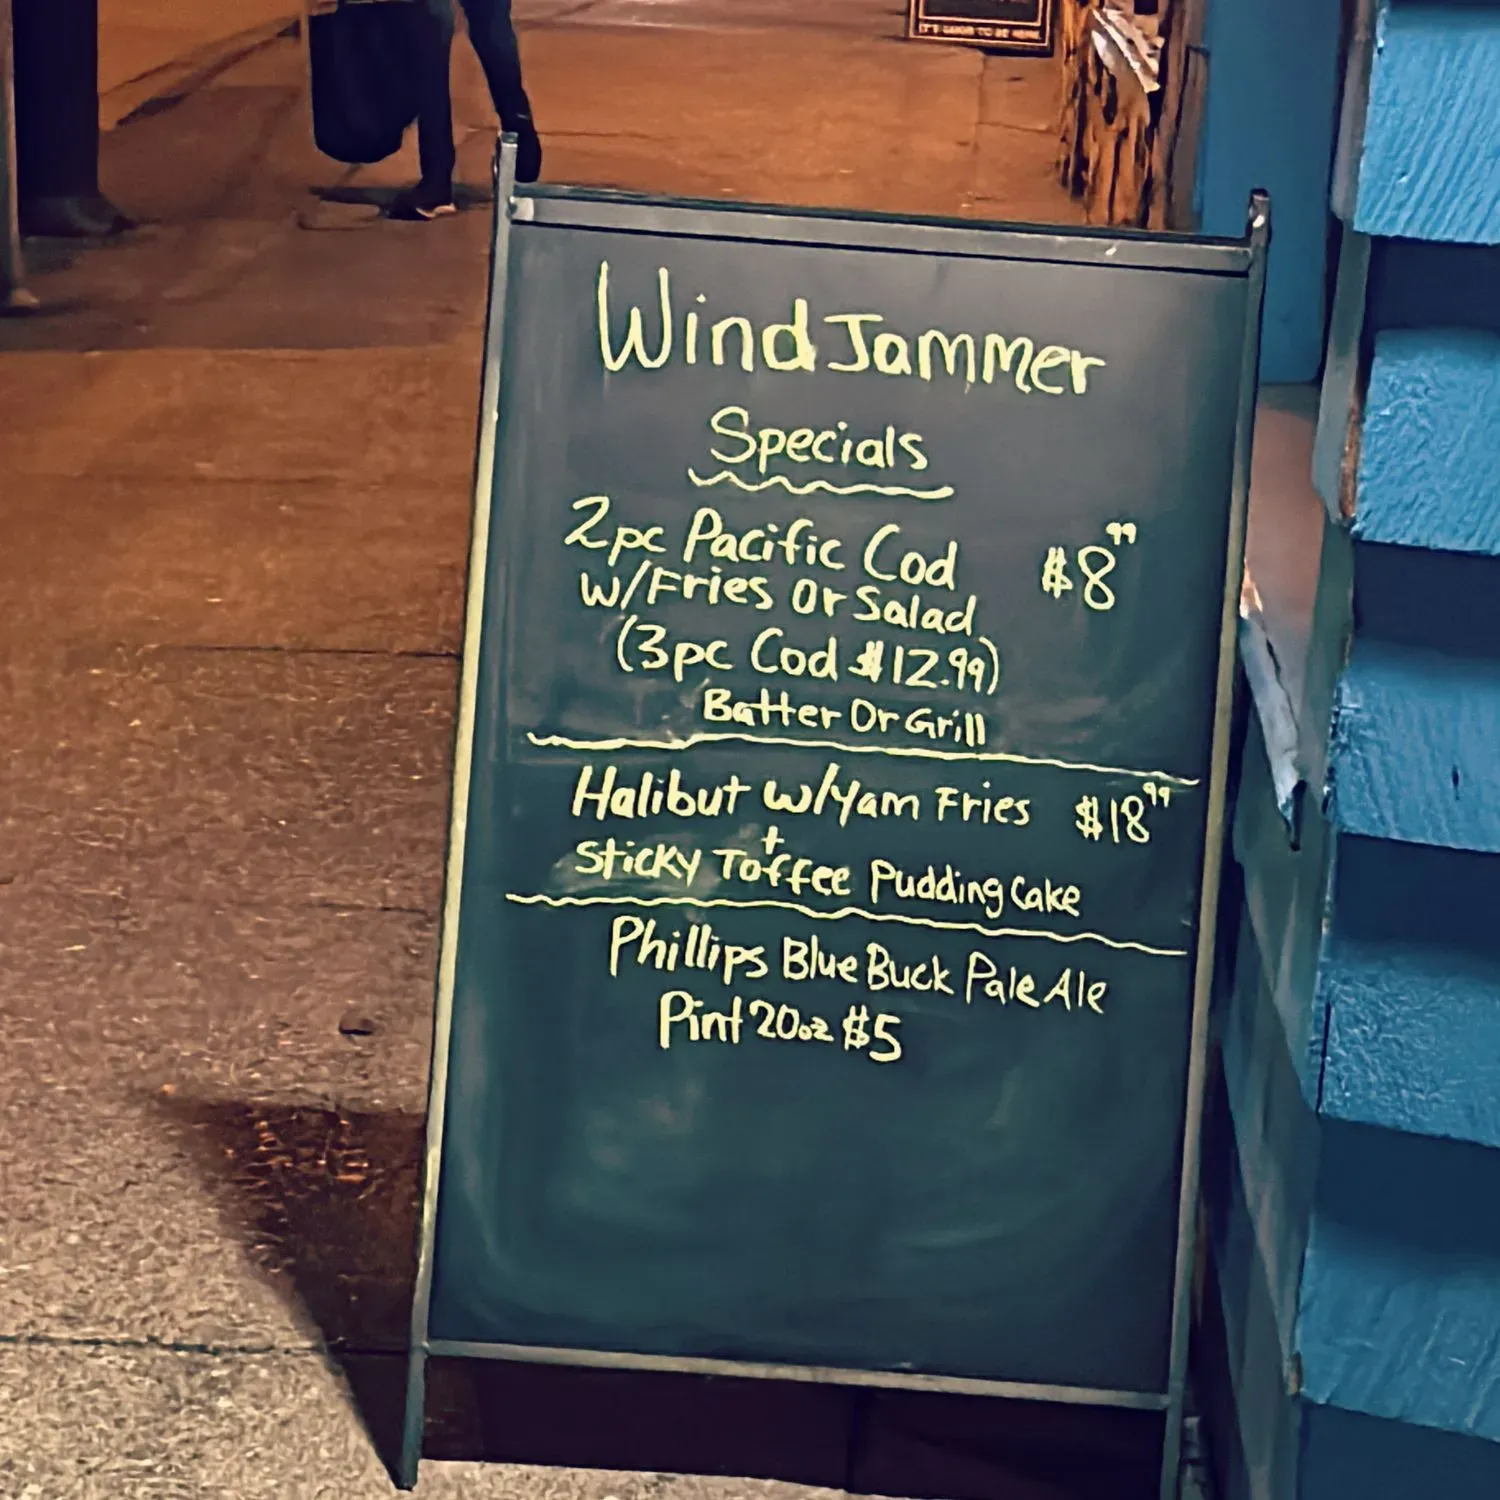 IT'S GOOD TO BE HERE
WindJammer
Specials
2pc Pacific Cod $8.99
w/Fries Or Salad
(3pc Cod $12.99)
Batter Or Grill
Halibut w/Yam Fries $18.99
+
Sticky Toffee Pudding Cake
Phillips Blue Buck Pale Ale
Pint 20oz $5